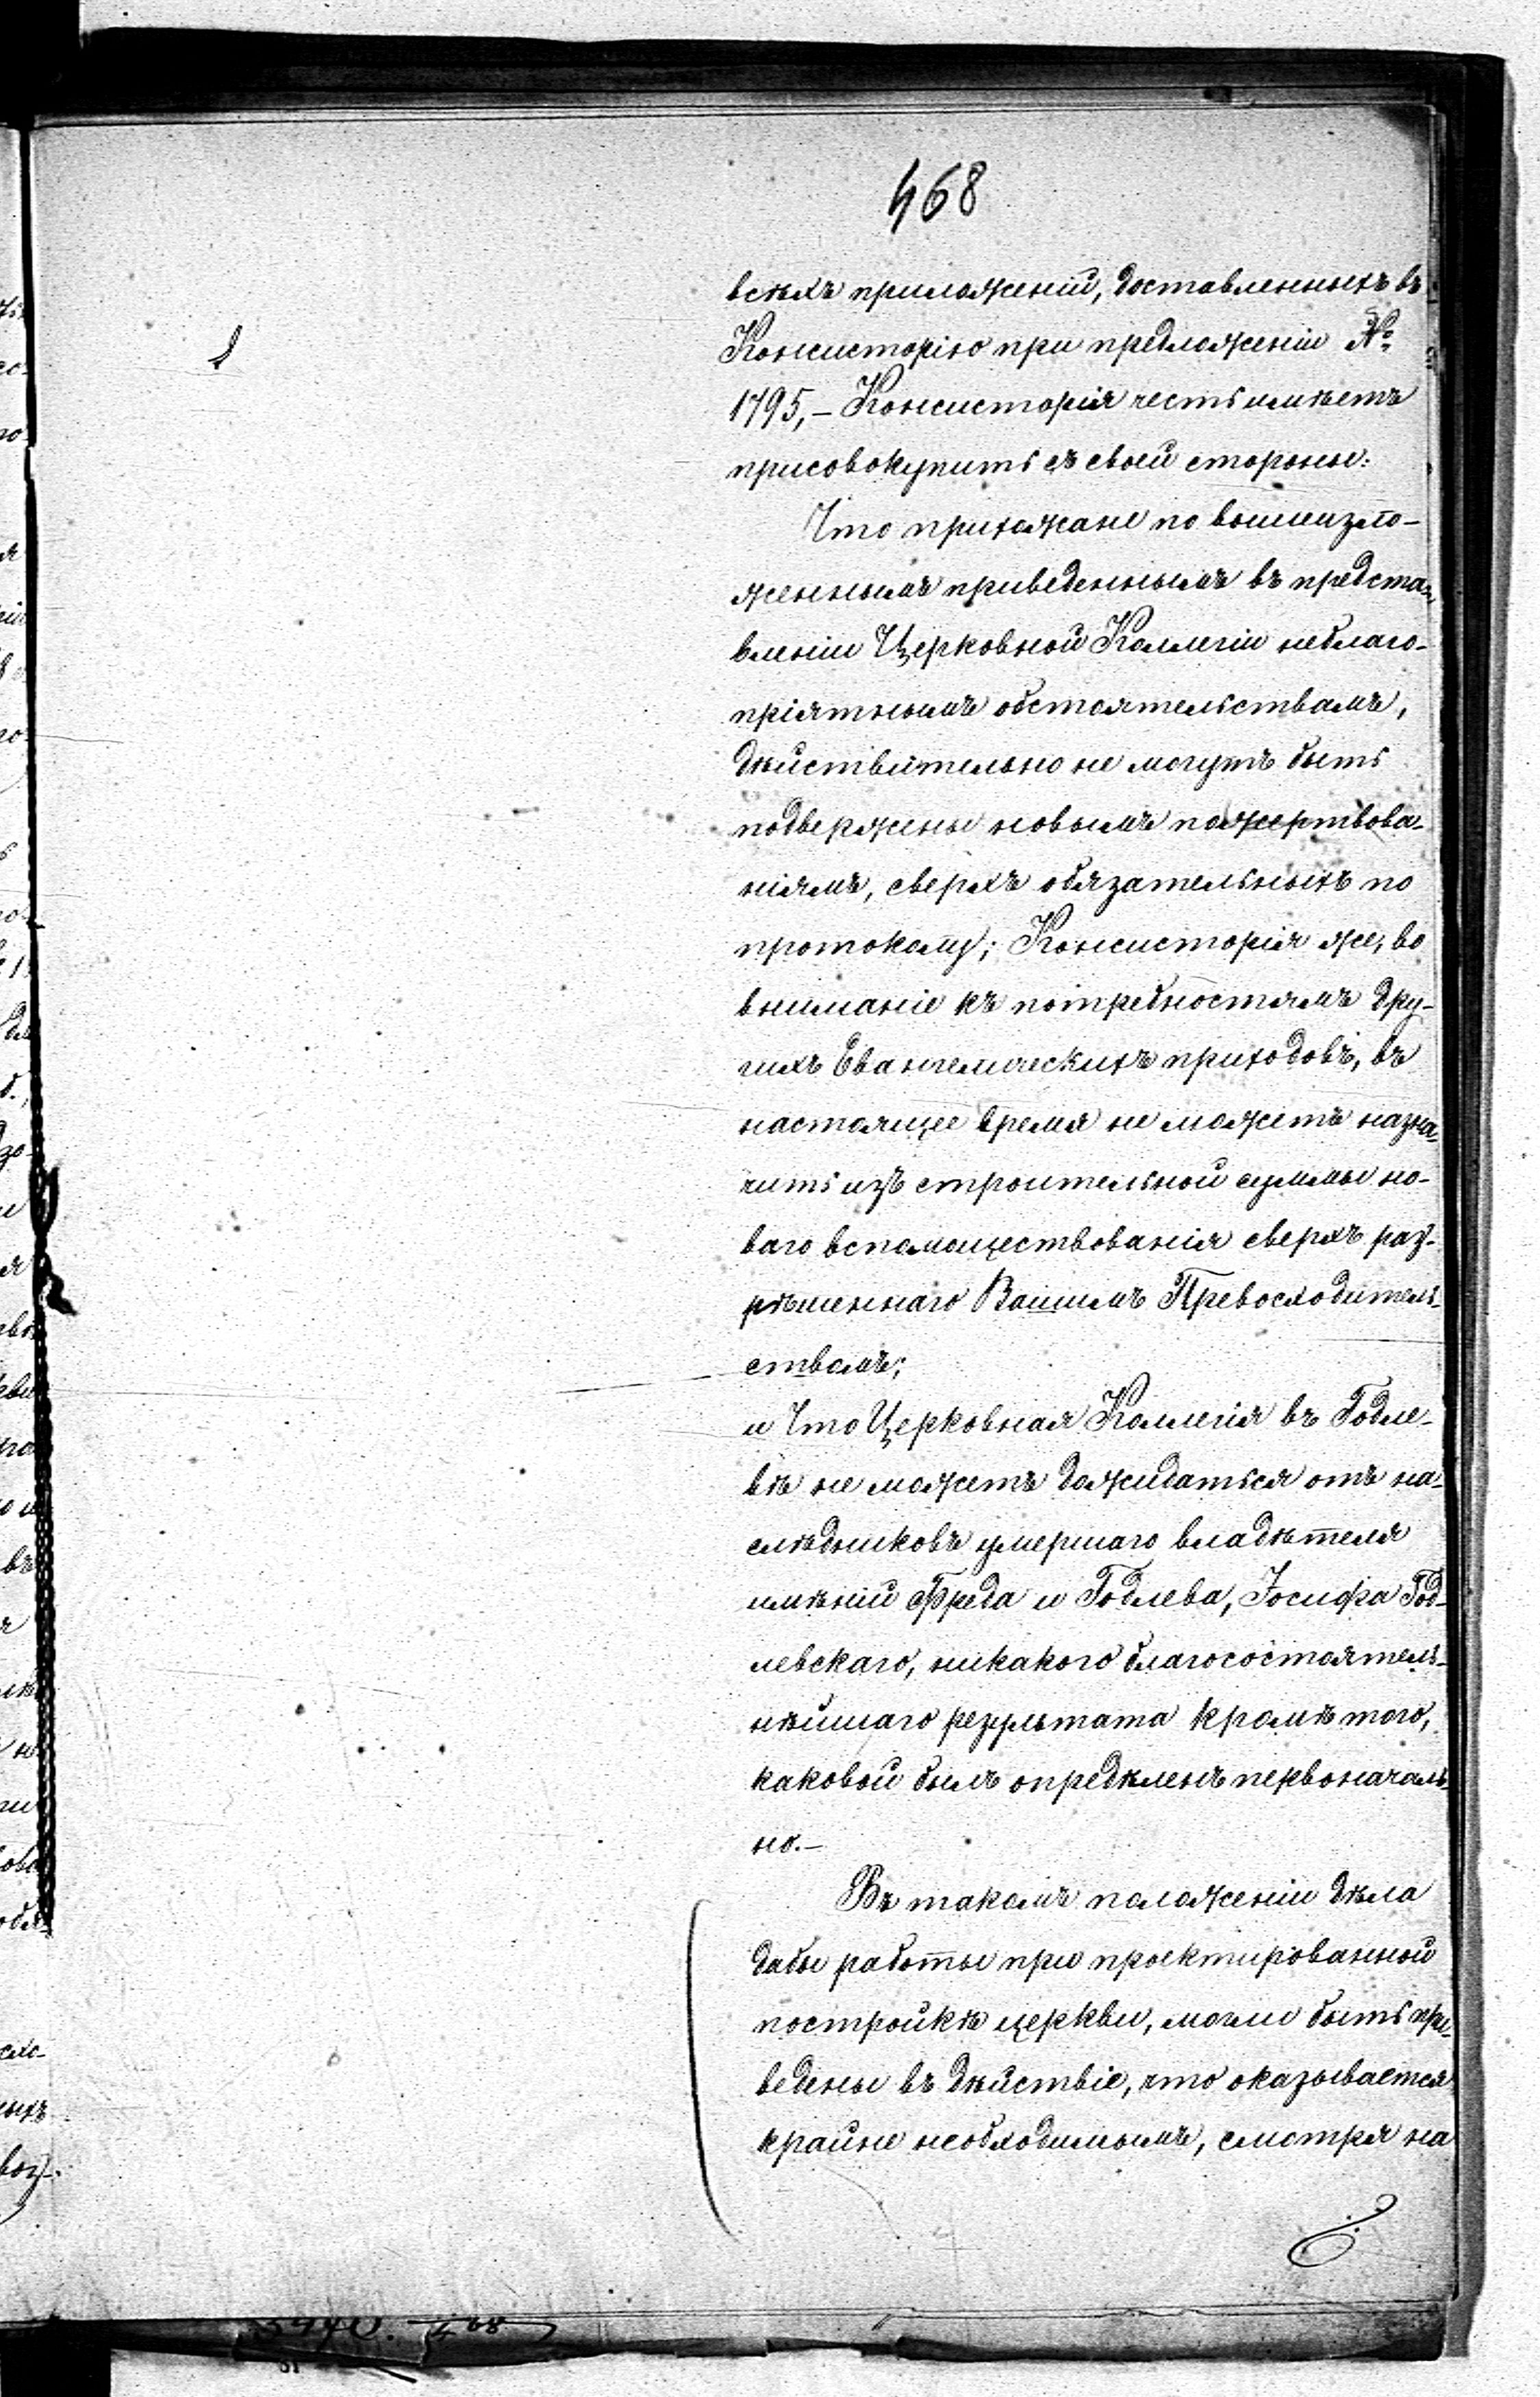 468
всѣхъ приложеній, доставленныхъ въ
Консисторію при предложеніи №
1795,— Консисторія честь имѣетъ
присовокупить съ своей стороны:
Что прихожане по вышеизло-
женнымъ приведеннымъ въ предста-
вленіи Церковной Коллегіи неблаго-
пріятнымъ обстоятельствамъ,
дѣйствительно не могутъ быть
подвержены новымъ пожертвова-
ніямъ, сверхъ обязательныхъ по
протоколу; Консисторія же, во
вниманіе къ потребностямъ дру-
гихъ Евангелическихъ приходовъ, въ
настоящее время не можетъ назна-
чить изъ строительной суммы но-
ваго вспомоществованія сверхъ раз-
рѣшеннаго Вашимъ Превосходитель-
ствомъ;
и Что Церковная Коллегія въ Годле-
вѣ не можетъ дожидаться отъ на-
слѣдниковъ умершаго владѣтеля
имѣній Фреда и Годлева, Іосифа Год-
левскаго, никакого благосостоятель-
нѣйшаго результата кромѣ того,
каковой былъ опредѣленъ первоначаль-
но.—
Въ такомъ положеніи дѣла
дабы работы при проектированной
постройкѣ церкви, могли быть при-
ведены въ дѣйствіе, что оказывается
крайне необходимымъ, смотря на